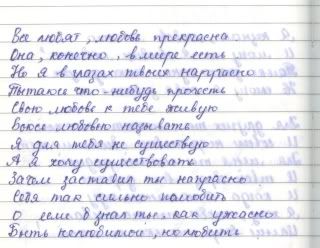 Все любят, любовь прекрасна
Она, конечно, в мире есть
Но я в глазах твоих напрасно
Пытаюсь что-нибудь прочесть
Свою любовь к тебе живую
Боюсь любовью называть
Я для тебя не существую
А я хочу существовать
Зачем заставил ты напрасно
Себя так сильно полюбить
О если б знал ты, как ужасно
Быть нелюбимой, но любить